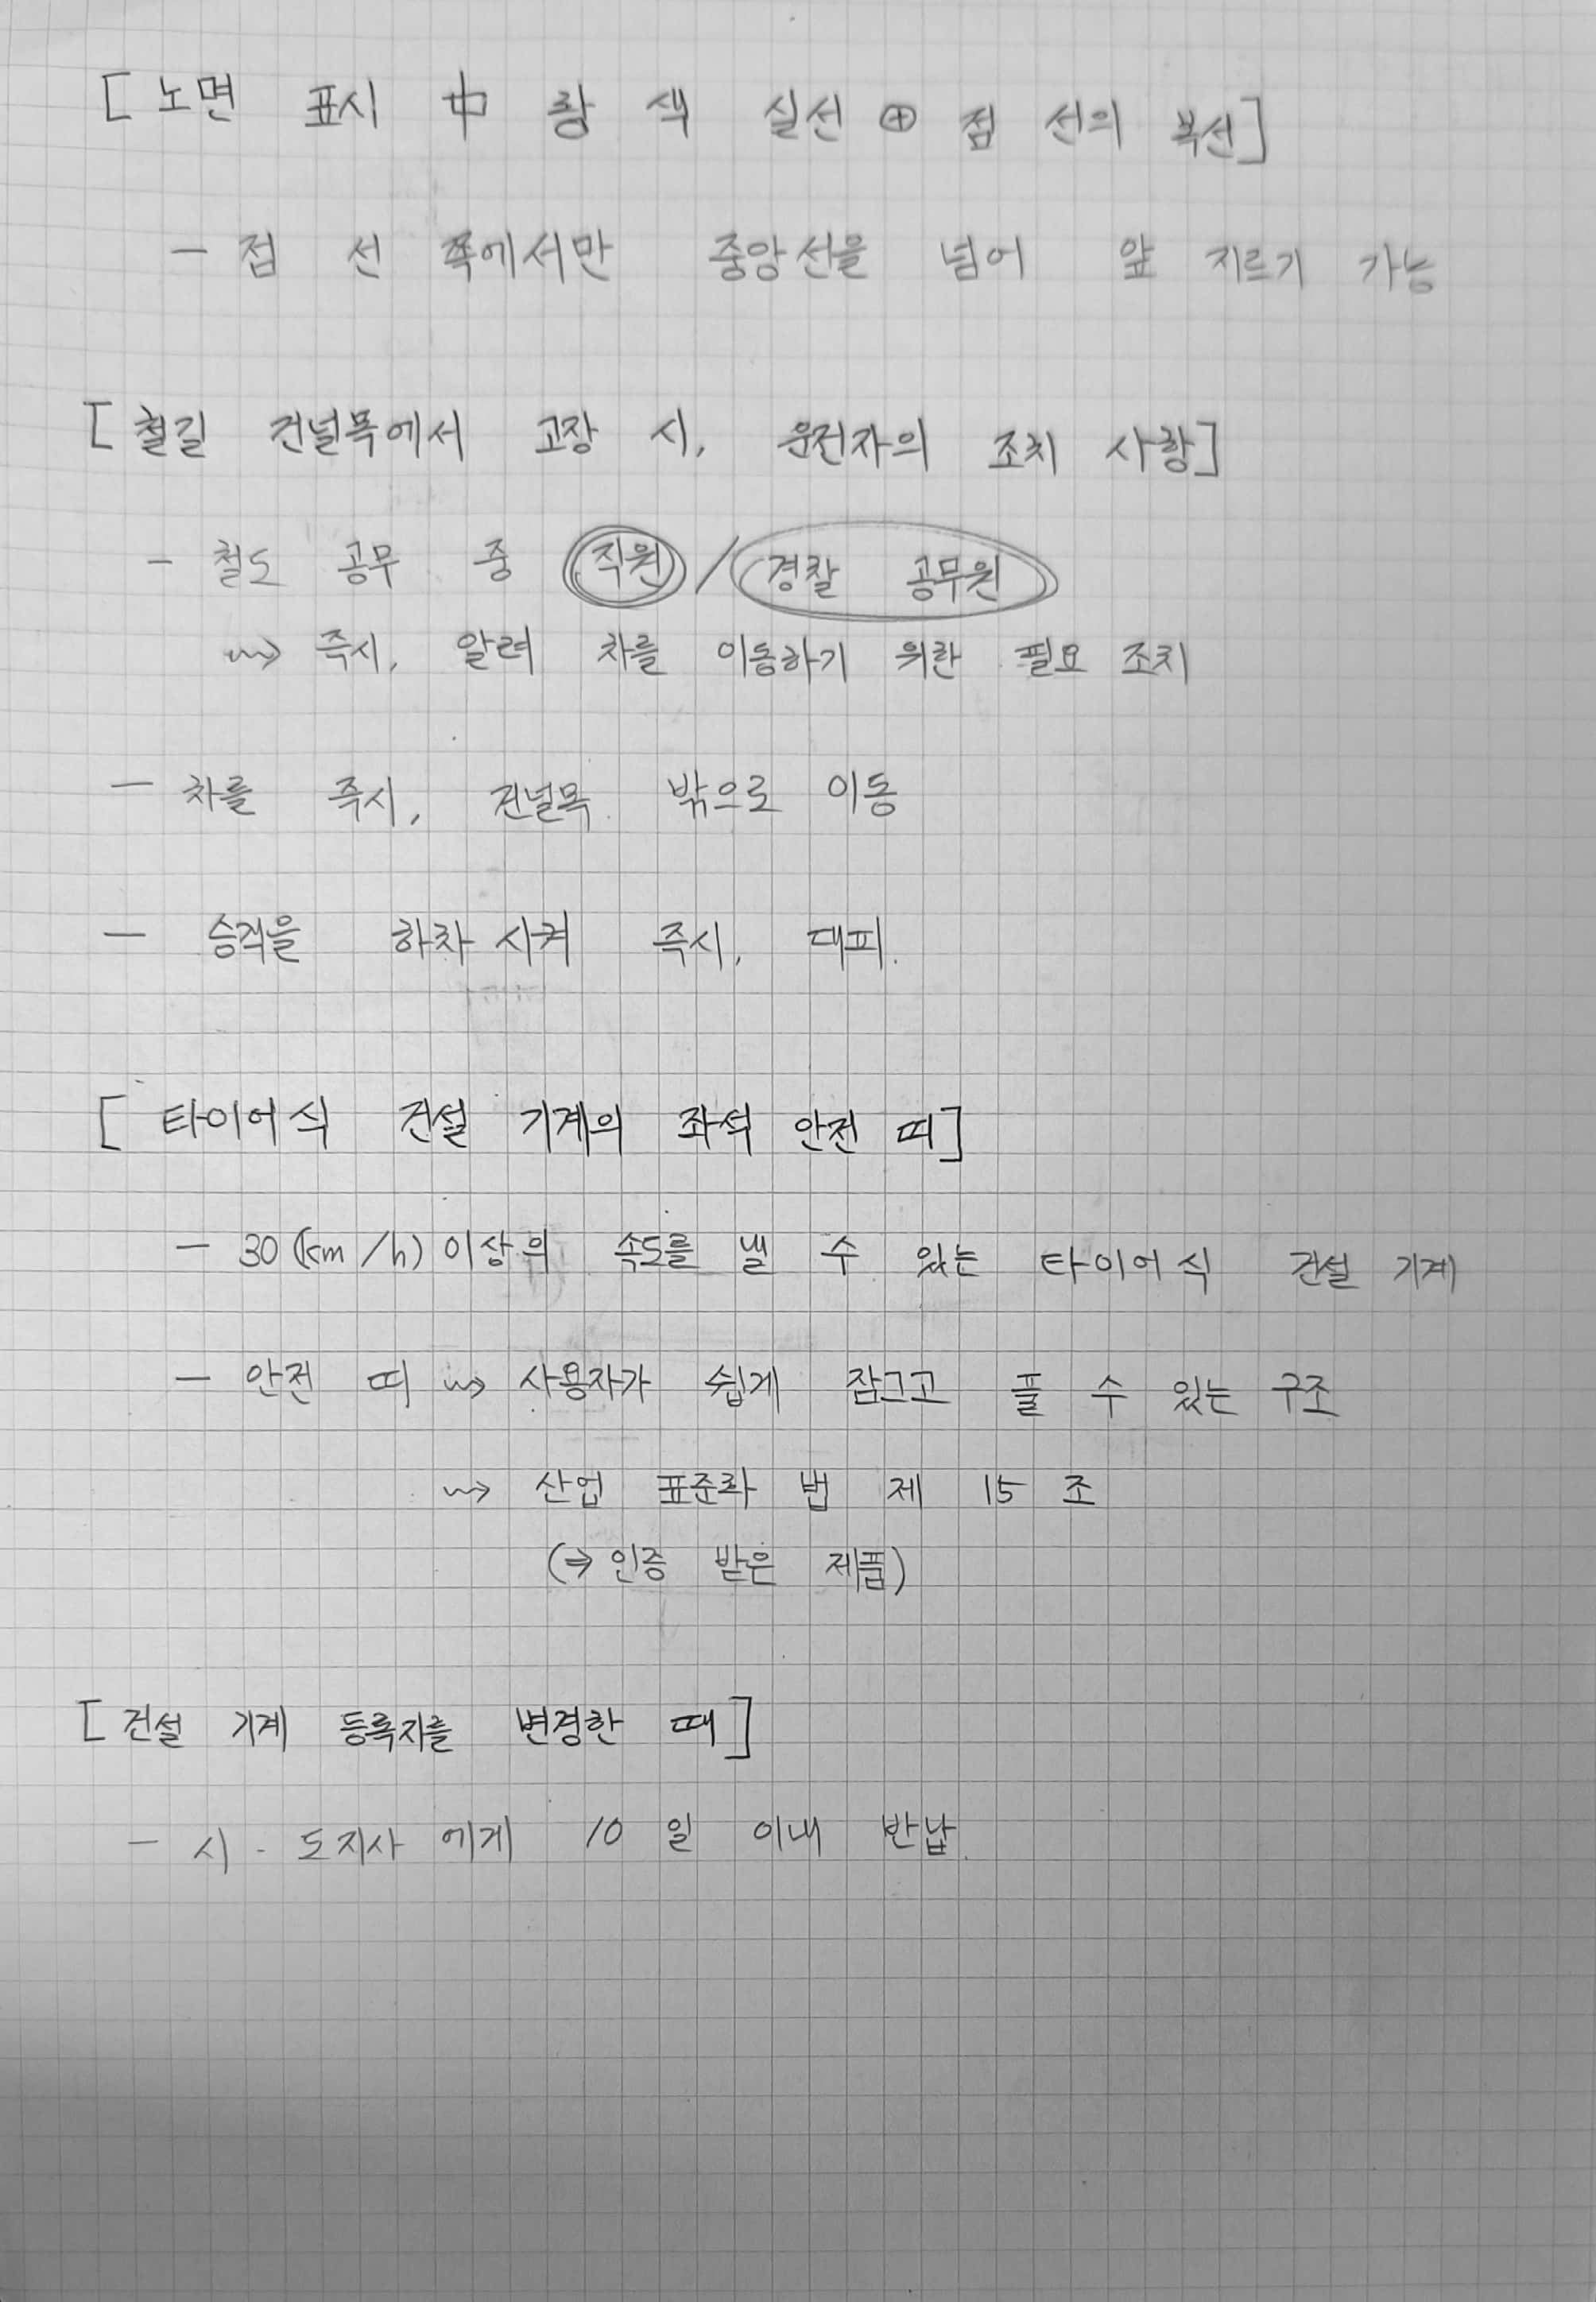 [ 노면 표시 中 황색 실선 ⊕ 점선의 복선 ]
- 점선 쪽에서만 중앙선을 넘어 앞지르기 가능
[ 철길 건널목에서 고장 시, 운전자의 조치 사항 ]
- 철도 공무 중 직원 / 경찰 공무원
⇝ 즉시, 알려 차를 이동하기 위한 필요 조치
- 차를 즉시, 건널목 밖으로 이동
- 승객을 하차 시켜 즉시, 대피.
[ 타이어식 건설 기계의 좌석 안전 띠 ]
- 30 (km/h) 이상의 속도를 낼 수 있는 타이어식 건설 기계
- 안전 띠 ⇝ 사용자가 쉽게 잠그고 풀 수 있는 구조
⇝ 산업 표준화 법 제 15 조
(⇒ 인증 받은 제품)
[ 건설 기계 등록지를 변경한 때 ]
- 시·도지사 에게 10 일 이내 반납.